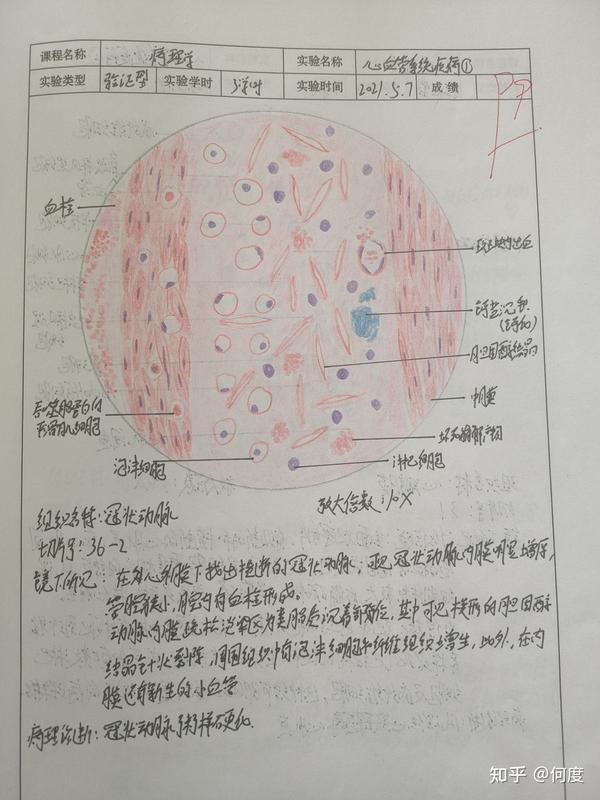 课程名称 病理学 实验名称 心血管系统疾病①
实验类型 验证型 实验学时 3学时 实验时间 2021.5.7 成绩
血栓
钙盐沉积
(钙化)
胆固醇结晶
中膜
坏死崩解产物
吞噬脂蛋白的
平滑肌细胞
泡沫细胞
淋巴细胞
放大倍数:10X
组织名称:冠状动脉
切片号:36-2
镜下所见:在心外膜下找出横断的冠状动脉;可见冠状动脉内膜明显增厚,
管腔狭小,腔内有血栓形成。
动脉内膜疏松淡染区为类脂质沉着部位,其中可见梭形的胆固醇
结晶针状裂隙,周围组织中有泡沫细胞和纤维组织增生,此外,在内
膜还有新生的小血管
病理诊断:冠状动脉粥样硬化.
知乎 @何度